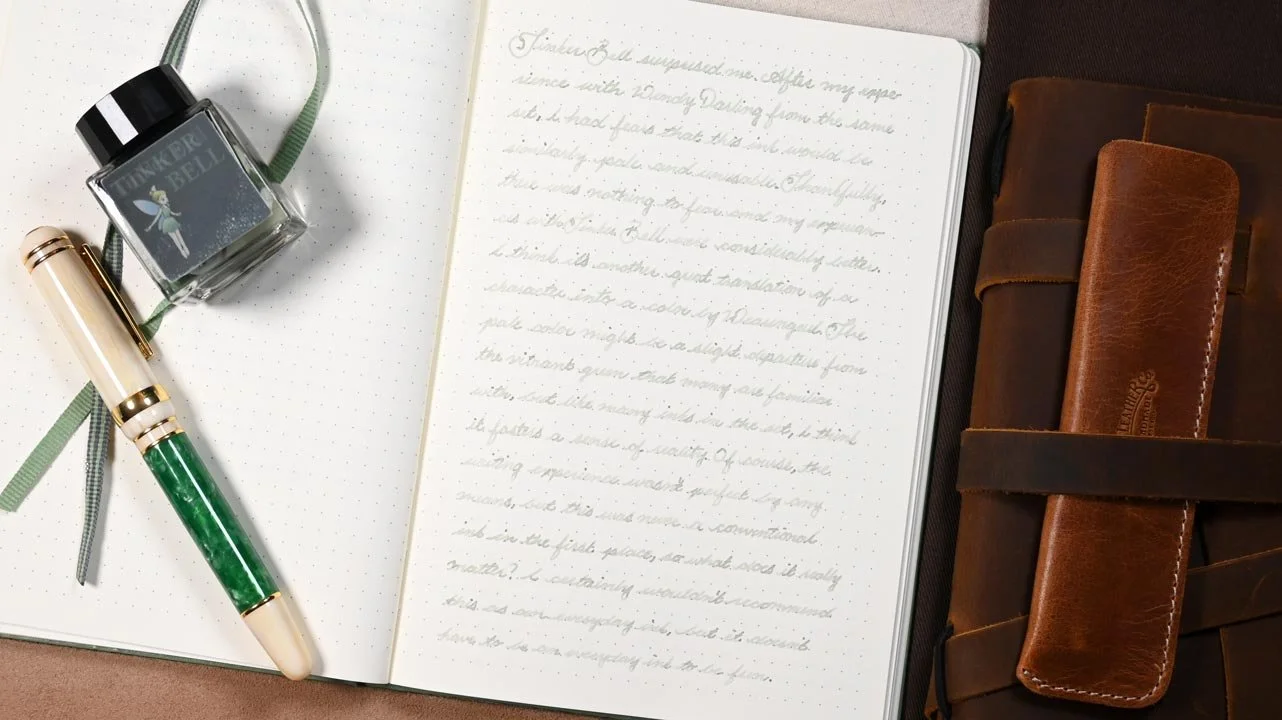 TINKER
BELL
Tinker Bell surprised me. After my expe-
rience with Wendy Darling from the same
set, I had fears that this ink would be
similarly pale and unusable. Thankfully,
there was nothing to fear and my experien-
ces with Tinker Bell were considerably better.
I think it's another great translation of a
character into a color by Wearingeul. The
pale color might be a slight departure from
the vibrant green that many are familiar
with, but like many inks in the set, I think
it fosters a sense of reality. Of course, the
writing experience wasn't perfect by any
means, but this was never a conventional
ink in the first place, so what does it really
matter? I certainly wouldn't recommend
this as an everyday ink, but it doesn't
have to be an everyday ink to be fun.
LEATHER Co.